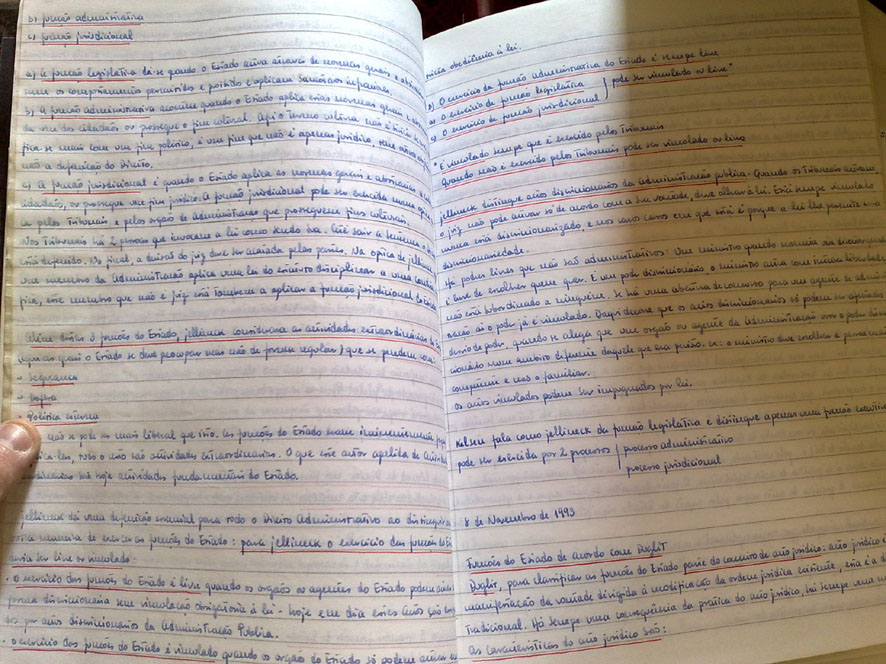 b) função administrativa
c) função jurisdicional
a) A função legislativa dá-se quando o Estado atua através de normas gerais e
nem os comportamentos permitidos e proibidos e aplicam
b) A função administrativa ocorre quando o Estado aplica essas normas gerais e
da vida dos cidadãos ou prossegue o fim cultural. Aqui o termo cultura não é
fica-se mais com um fim político, é um fim que não é apenas jurídico,
não a definição do Direito.
c) A função jurisdicional é quando o Estado aplica as normas gerais e abstractas
cidadãos, ou prossegue um fim jurídico. A função jurisdicional pode ser exercida
a pelos Tribunais e pelos orgãos da administração que prosseguem fins culturais.
Nos Tribunais há 2 pessoas que invocam a lei como sendo sua.
está definido. No final, a decisão do juiz deve ser acatada pelas partes. Na optica de jellineck
um membro da Administração aplica uma lei do estatuto disciplinar a uma
fica, esse membro que não é juiz está também a aplicar a função jurisdicional do
Além destas 3 funções do Estado, jellineck considerava as actividades extraordinárias do
com as quais o Estado se deve preocupar mas não de forma regular) que se prendem com:
- Segurança
- Defesa
- Política externa
não se pode ser mais liberal que isto. As funções do Estado
tudo o resto são actividades extraordinárias. O que este autor apelida de
são hoje actividades fundamentais do Estado.
jellineck dá uma definição essencial para todo o Direito Administrativo ao distinguir
maneira de exercer as funções do Estado: para jellineck o exercício das funções
ser livre ou vinculado.
- o exercício das funções do Estado é livre quando os orgãos ou agentes do Estado podem
forma discricionária sem vinculação obrigatória à lei - hoje em dia estes actos são
dos por actos discricionários da Administração Pública.
- o exercício das funções do Estado é vinculado quando os orgãos do Estado só podem
obediência à lei.
b) O exercício da função administrativa do Estado é sempre livre
a) o exercício da função legislativa
c) O exercício da função jurisdicional } pode ser vinculado ou livre*
* É vinculado sempre que é exercido pelos tribunais
Quando não é exercido pelos tribunais pode ser vinculado ou livre
jellineck distingue actos discricionários da administração publica. Quando os Tribunais actuam,
o juiz não pode actuar só de acordo com a sua vontade, deve olhar à lei. Está sempre vinculado,
nunca está discricionarizado, e nos raros casos em que está é porque a lei lhe permite
discricionariedade.
Há poderes livres que não são administrativos: Um ministro quando nomeia
é livre de escolher quem quer. É um poder discricionário o ministro actua com inteira liberdade
não está subordinado a ninguém. Se há uma abertura de concurso para um agente da
então aí o poder já é vinculado. Daqui decorre que os actos discricionários só podem ser apreciados
desvio de poder, quando se alega que um orgão ou agente da Administração usou o poder
cionário num âmbito diferente daquele que era previsto. ex: o ministro deve escolher a pessoa mais
competente e não o familiar.
Os actos vinculados podem ser impugnados por lei.
Kelsen fala como jellineck da função legislativa e distingue apenas uma função executiva
pode ser exercida por 2 processos { processo administrativo
processo jurisdicional
8 de Novembro de 1993
Funções do Estado de acordo com Duguit
Duguit, para classificar as funções do Estado parte do conceito de acto jurídico: acto jurídico é
manifestação da vontade dirigida à modificação da ordem jurídica existente, esta é a
tradicional. Há sempre uma consequência da prática do acto jurídico, há sempre uma
As características do acto jurídico são: